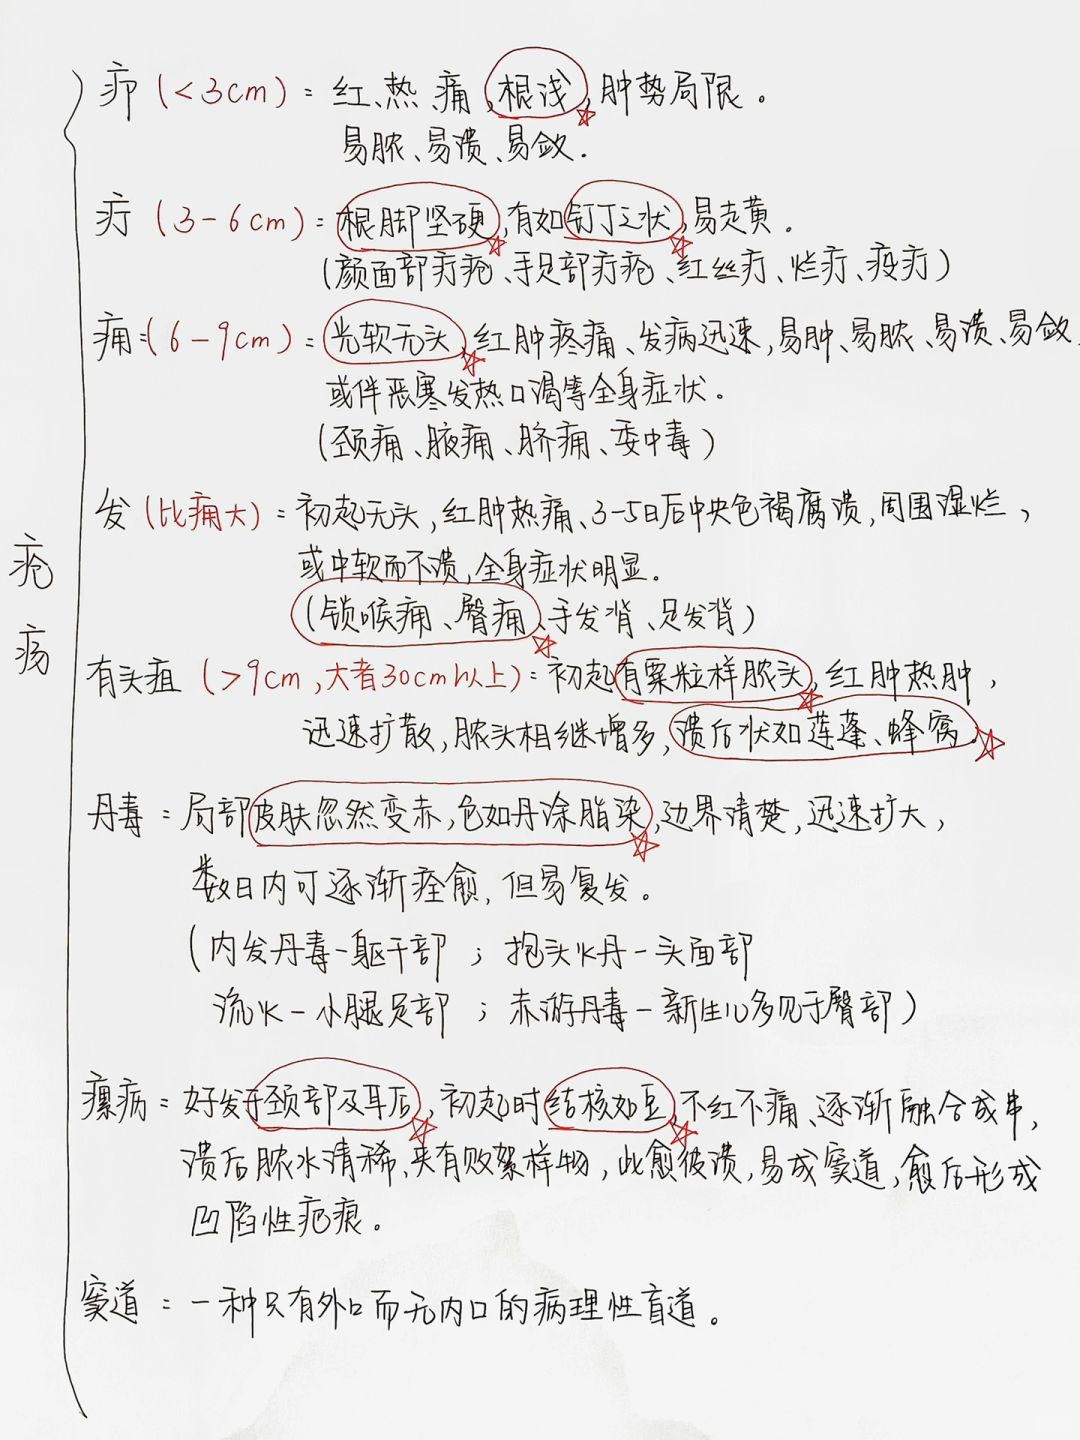 疮疡
疖(<3cm)=红、热、痛、根浅,肿势局限。
易脓、易溃、易敛.
疔(3-6cm)=根脚坚硬,有如钉丁之状,易走黄。
(颜面部疔疮、手足部疔疮、红丝疔、烂疔、疫疔)
痈=(6-9cm)=光软无头,红肿疼痛、发病迅速,易肿、易脓、易溃、易敛,
或伴恶寒发热口渴等全身症状。
(颈痈、腋痈、脐痈、委中毒)
发(比痈大)=初起无头,红肿热痛、3-5日后中央色褐腐溃,周围湿烂,
或中软而不溃,全身症状明显.
(锁喉痈、臀痈、手发背、足发背)
有头疽(>9cm,大者30cm以上)=初起有粟粒样脓头,红肿热肿,
迅速扩散,脓头相继增多,溃后状如莲蓬、蜂窝.
丹毒=局部皮肤忽然变赤,色如丹涂脂染,边界清楚,迅速扩大,
数日内可逐渐痊愈,但易复发。
(内发丹毒-躯干部;抱头火丹-头面部
流火-小腿足部;赤游丹毒-新生儿多见于臀部)
瘰病=好发于颈部及耳后,初起时结核如豆,不红不痛、逐渐融合成串,
溃后脓水清稀、夹有败絮样物,此愈彼溃,易成窦道,愈后形成
凹陷性疤痕。
窦道=一种只有外口而无内口的病理性盲道。